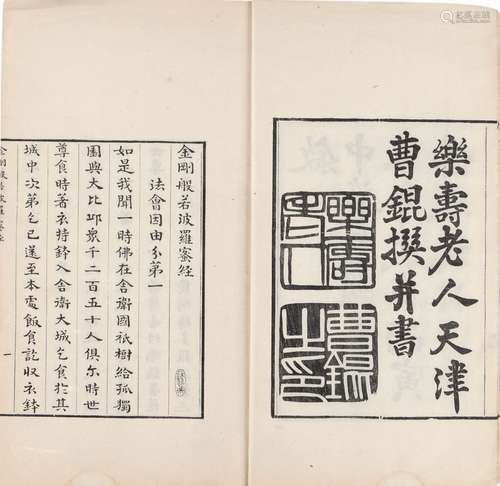 樂壽老人天津
曹錕撰并書
樂壽老人
曹錕之印
金剛般若波羅蜜經
法會因由分第一
如是我聞一時佛在舍衛國祇樹給孤獨
園與大比邱衆千二百五十人俱尒時世
尊食時著衣持鉢入舍衛大城乞食於其
城中次第乞已還至本處飯食訖收衣鉢
一